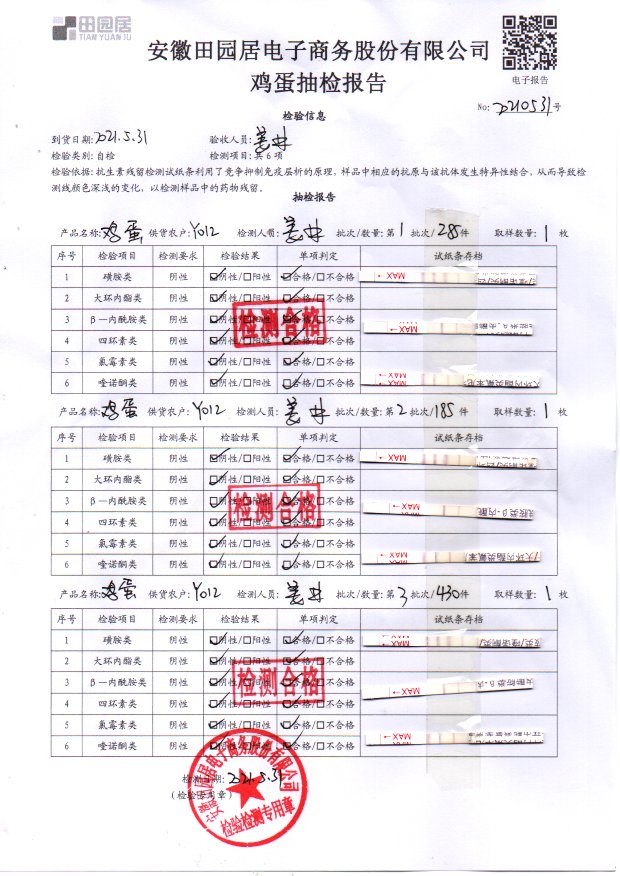 田园居
TIAN YUAN JU
安徽田园居电子商务股份有限公司
鸡蛋抽检报告
电子报告
No: 20210531号
检验信息
到货日期: 2021.5.31 验收人员:
检验类别: 自检 检测项目: 共6项
检验依据: 抗生素残留检测试纸条利用了竞争抑制免疫层析的原理, 样品中相应的抗原与该抗体发生特异性结合, 从而导致检
测线颜色深浅的变化, 以检测样品中的药物残留。
抽检报告
产品名称: 鸡蛋 供货农户: Y012 检测人员: 批次/数量: 第1批次/285件 取样数量: 1枚
序号 检验项目 检测要求 检验结果 单项判定 试纸条存档
1 磺胺类 阴性 ☑阴性/□阳性 ☑合格/□不合格 MAX
2 大环内酯类 阴性 ☑阴性/□阳性 ☑合格/□不合格
3 β一内酰胺类 阴性 ☑阴性/□阳性 ☑合格/□不合格 MAX
4 四环素类 阴性 ☑阴性/□阳性 ☑合格/□不合格
5 氯霉素类 阴性 ☑阴性/□阳性 ☑合格/□不合格
6 喹诺酮类 阴性 ☑阴性/□阳性 ☑合格/□不合格 MAX
检测合格
产品名称: 鸡蛋 供货农户: Y012 检测人员: 批次/数量: 第2批次/185件 取样数量: 1枚
序号 检验项目 检测要求 检验结果 单项判定 试纸条存档
1 磺胺类 阴性 ☑阴性/□阳性 ☑合格/□不合格 MAX
2 大环内酯类 阴性 ☑阴性/□阳性 ☑合格/□不合格
3 β一内酰胺类 阴性 ☑阴性/□阳性 ☑合格/□不合格 MAX
4 四环素类 阴性 ☑阴性/□阳性 ☑合格/□不合格
5 氯霉素类 阴性 ☑阴性/□阳性 ☑合格/□不合格 MAX
6 喹诺酮类 阴性 ☑阴性/□阳性 ☑合格/□不合格
检测合格
产品名称: 鸡蛋 供货农户: Y012 检测人员: 批次/数量: 第3批次/430件 取样数量: 1枚
序号 检验项目 检测要求 检验结果 单项判定 试纸条存档
1 磺胺类 阴性 ☑阴性/□阳性 ☑合格/□不合格 MAX
2 大环内酯类 阴性 ☑阴性/□阳性 ☑合格/□不合格
3 β一内酰胺类 阴性 ☑阴性/□阳性 ☑合格/□不合格 MAX
4 四环素类 阴性 ☑阴性/□阳性 ☑合格/□不合格
5 氯霉素类 阴性 ☑阴性/□阳性 ☑合格/□不合格
6 喹诺酮类 阴性 ☑阴性/□阳性 ☑合格/□不合格 MAX
检测合格
检测日期: 2021.5.31
(检验专用章)
安徽田园居电子商务股份有限公司
检验检测专用章